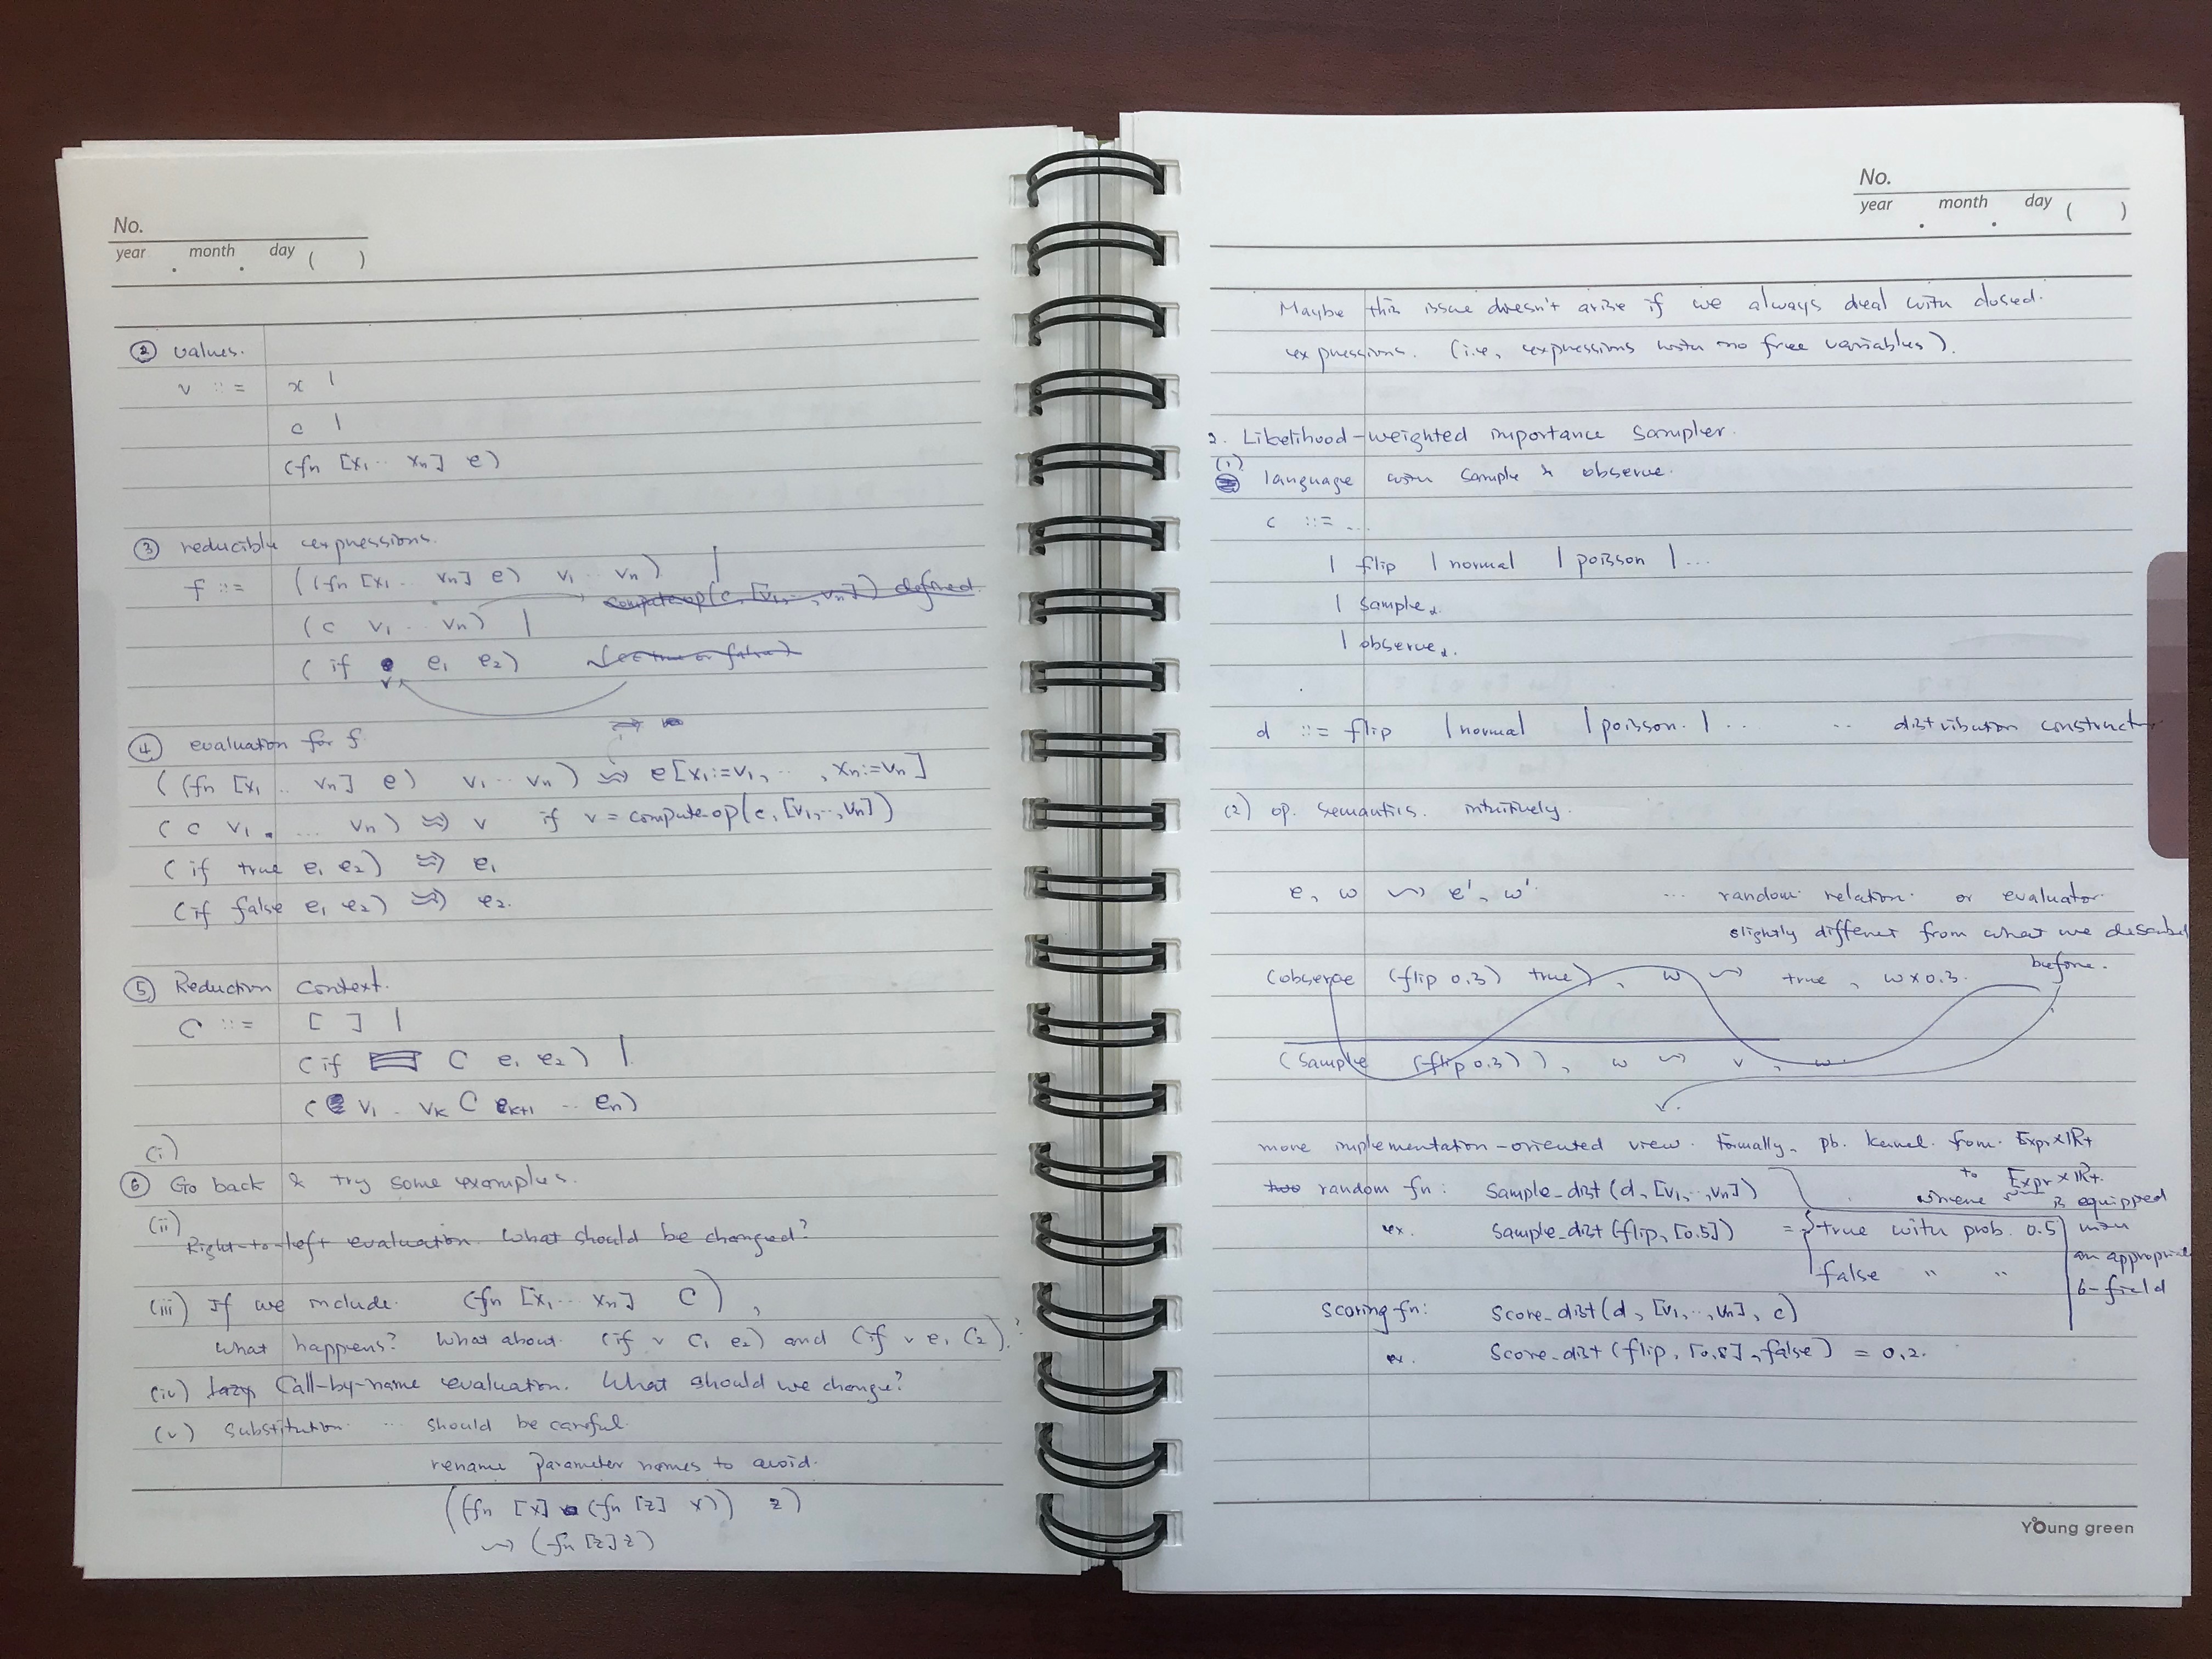 No.
year . month . day ( )
② values.
v ::= x |
c |
(fn [x₁ ·· xₙ] e)
③ reducible expressions.
f ::= ((fn [x₁ ·· vₙ] e) v₁ ·· vₙ) |
compute-op(c, [v₁, ··, vₙ]) defined.
(c v₁ ·· vₙ) |
(if e₁ e₂)
v
④ evaluation for f
((fn [x₁ ·· vₙ] e) v₁ ·· vₙ) ⇝ e[x₁:=v₁, ·· , xₙ:=vₙ]
(c v₁ ... vₙ) ⇝ v if v = compute-op(c, [v₁, ··, vₙ])
(if true e₁ e₂) ⇝ e₁
(if false e₁ e₂) ⇝ e₂.
⑤ Reduction Context.
C ::= [ ] |
(if C e₁ e₂) |
(v₁ ·· vₖ C eₖ₊₁ ·· eₙ)
(i)
⑥ Go back & try some examples.
(ii) Right-to-left evaluation. What should be changed?
(iii) If we include (fn [x₁ ··· xₙ] C),
What happens? What about (if v C₁ e₂) and (if v e₁ C₂)?
(iv) lazy Call-by-name evaluation. What should we change?
(v) substitution ... should be careful
rename parameter names to avoid.
((fn [x] (fn [z] x)) z)
⇝ (fn [z] z)
No.
year . month . day ( )
Maybe this issue doesn't arise if we always deal with closed
expressions. (i.e, expressions with no free variables).
2. Likelihood-weighted importance sampler.
(1) language with sample & observe.
c ::= ...
| flip | normal | poisson | ...
| sample.
| observe.
d ::= flip | normal | poisson. | .. .. distribution construct
(2) op. semantics. intuitively.
e, w ⇝ e', w' ... random relation or evaluator
slightly different from what we described
before.
(observe (flip 0.3) true), w ⇝ true, w×0.3.
(sample (flip 0.3)), w ⇝ v, w
more implementation-oriented view. Formally, pb. kernel from Expr×ℝ₊
to Expr×ℝ₊.
two random fn: sample_dist(d, [v₁, ··, vₙ])
where is equipped
ex. sample_dist(flip, [0.5]) = { true with prob. 0.5
with
false " "
an appropriate
σ-field
scoring fn: score_dist(d, [v₁, ··, vₙ], c)
ex. score_dist(flip, [0.8], false) = 0.2.
Young green